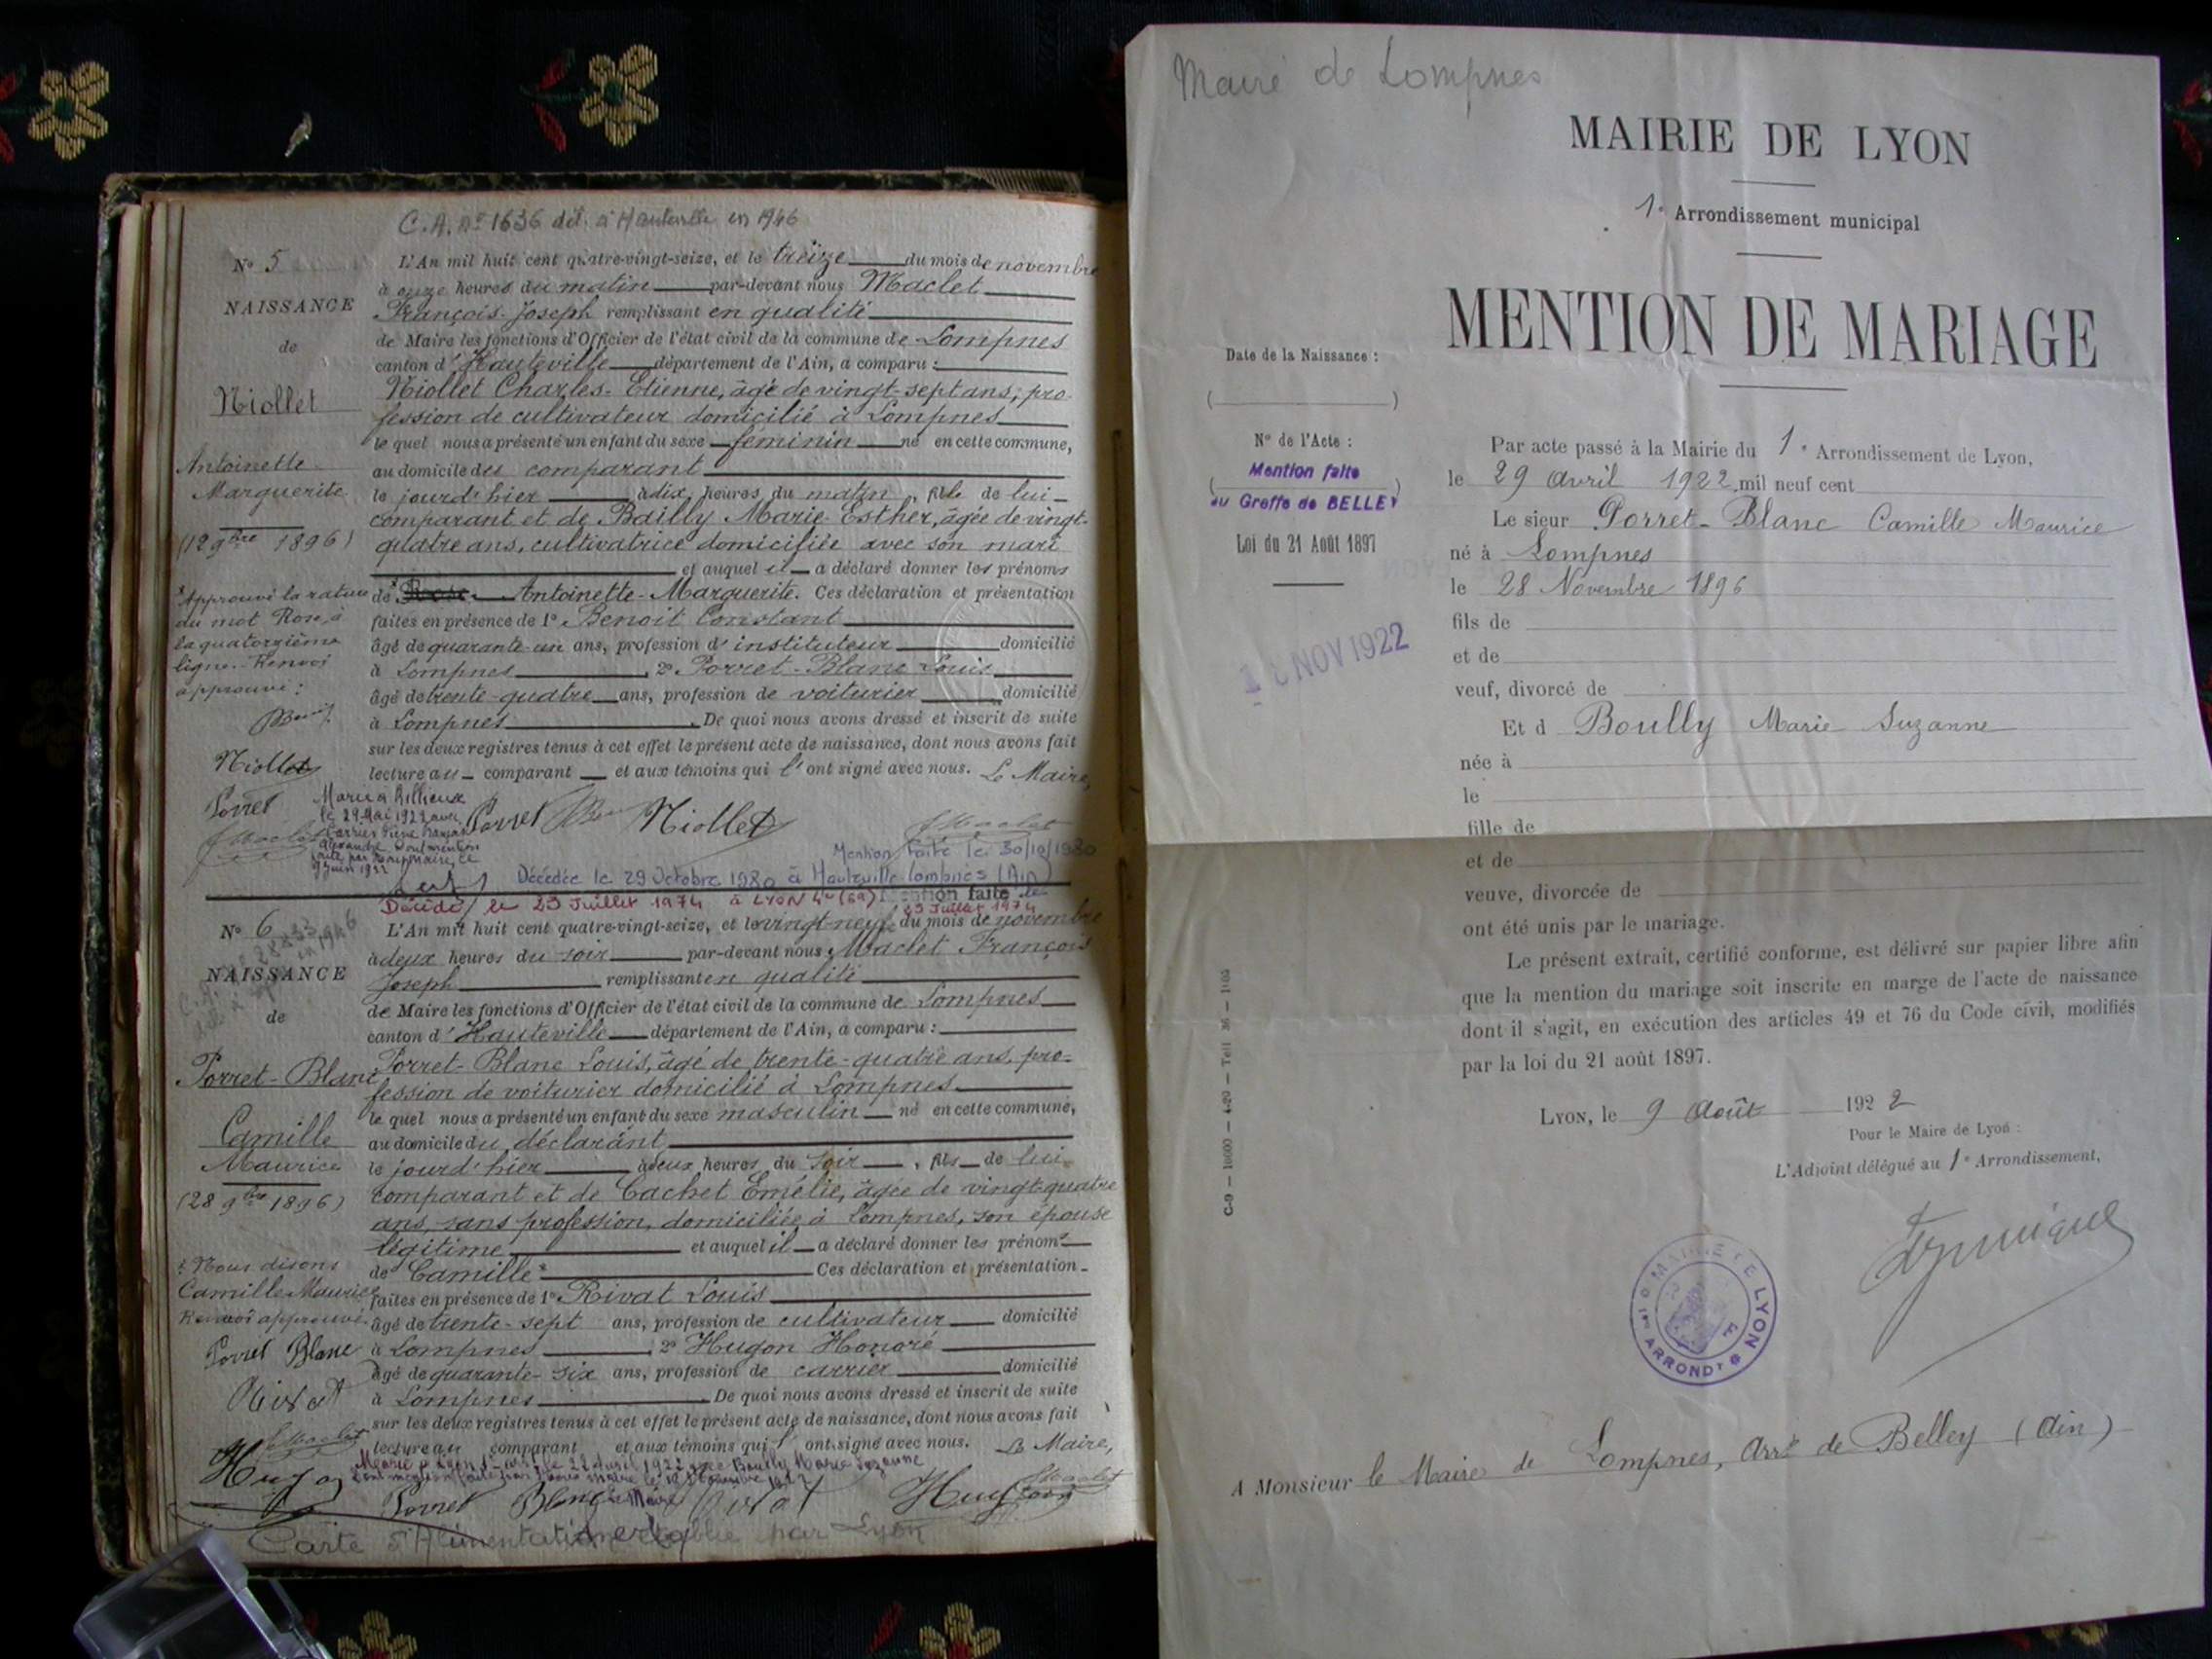 C.A. n° 1636 dél. à Hauteville en 1946
N° 5
NAISSANCE
de
Niollet
Antoinette
Marguerite
(12 9bre 1896)
Approuvé la rature
du mot Rose, à
la quatorzième
ligne. Renvoi
approuvé :
Niollet
Porret
L'An mil huit cent quatre-vingt-seize, et le treize du mois de novembre
à onze heures du matin par-devant nous Maclet
François-Joseph remplissant en qualité
de Maire les fonctions d'Officier de l'état civil de la commune de Lompnes
canton d'Hauteville département de l'Ain, a comparu :
Niollet Charles-Etienne, âgé de vingt-sept ans, pro-
fession de cultivateur domicilié à Lompnes
lequel nous a présenté un enfant du sexe féminin né en cette commune,
au domicile des comparant
le jourd'hier à dix heures du matin, fille de lui-
comparant et de Bailly Marie-Esther, âgée de vingt-
quatre ans, cultivatrice domiciliée avec son mari
et auquel il a déclaré donner les prénoms
de Rose Antoinette-Marguerite. Ces déclaration et présentation
faites en présence de 1° Benoit Constant
âgé de quarante-un ans, profession d'instituteur domicilié
à Lompnes, 2° Porret-Blanc Louis
âgé de trente-quatre ans, profession de voiturier domicilié
à Lompnes. De quoi nous avons dressé et inscrit de suite
sur les deux registres tenus à cet effet le présent acte de naissance, dont nous avons fait
lecture au comparant et aux témoins qui l'ont signé avec nous. Le Maire,
Mariée à Rillieux
le 29 Mai 1922 avec
Alexandre Dont mention
faite par nous maire, le
9 Juin 1922
Porret Niollet Maclet
Mention faite le 30/10/1980
Décédée le 29 Octobre 1980 à Hauteville-Lompnes (Ain)
Décédé le 23 Juillet 1974 à LYON 4e (69) Mention faite le
23 Juillet 1974
N° 6
NAISSANCE
de
Porret-Blanc
Camille
Maurice
(28 9bre 1896)
Nous disons
Camille Maurice
Renvoi approuvé
Porret Blanc
Rivat
Maclet
Hugon
L'An mil huit cent quatre-vingt-seize, et le vingt-neuf du mois de novembre
à deux heures du soir par-devant nous Maclet François
Joseph remplissant en qualité
de Maire les fonctions d'Officier de l'état civil de la commune de Lompnes
canton d'Hauteville département de l'Ain, a comparu :
Porret-Blanc Louis, âgé de trente-quatre ans, pro-
fession de voiturier domicilié à Lompnes
lequel nous a présenté un enfant du sexe masculin né en cette commune,
au domicile du déclarant
le jourd'hier à deux heures du soir, fils de lui
comparant et de Cachet Emélie, âgée de vingt-quatre
ans, sans profession, domiciliée à Lompnes, son épouse
légitime et auquel il a déclaré donner les prénoms
de Camille Ces déclaration et présentation
faites en présence de 1° Rivat Louis
âgé de trente-sept ans, profession de cultivateur domicilié
à Lompnes, 2° Hugon Honoré
âgé de quarante-six ans, profession de carrier domicilié
à Lompnes. De quoi nous avons dressé et inscrit de suite
sur les deux registres tenus à cet effet le présent acte de naissance, dont nous avons fait
lecture au comparant et aux témoins qui l'ont signé avec nous. Le Maire,
Marié à Lyon 1er arrt le 29 Avril 1922 avec Boully Marie Suzanne
Dont mention faite par nous maire le Novembre 1922
Porret Blanc Le Maire Rivat Hugon Maclet
Carte d'Alimentation établie par Lyon
Mairie de Lompnes
MAIRIE DE LYON
1e Arrondissement municipal
MENTION DE MARIAGE
Date de la Naissance :
( )
N° de l'Acte :
Mention faite
au Greffe de BELLEY
Loi du 21 Août 1897
NOV 1922
C-9 — 10000 — 4-20
Par acte passé à la Mairie du 1e Arrondissement de Lyon,
le 29 Avril 1922 mil neuf cent
Le sieur Porret-Blanc Camille Maurice
né à Lompnes
le 28 Novembre 1896
fils de
et de
veuf, divorcé de
Et d Boully Marie Suzanne
née à
le
fille de
et de
veuve, divorcée de
ont été unis par le mariage.
Le présent extrait, certifié conforme, est délivré sur papier libre afin
que la mention du mariage soit inscrite en marge de l'acte de naissance
dont il s'agit, en exécution des articles 49 et 76 du Code civil, modifiés
par la loi du 21 août 1897.
LYON, le 9 Août 1922
Pour le Maire de Lyon :
L'Adjoint délégué au 1e Arrondissement,
MAIRIE DE LYON
1er ARRONDT
A Monsieur le Maire de Lompnes, Arrt de Belley (Ain)